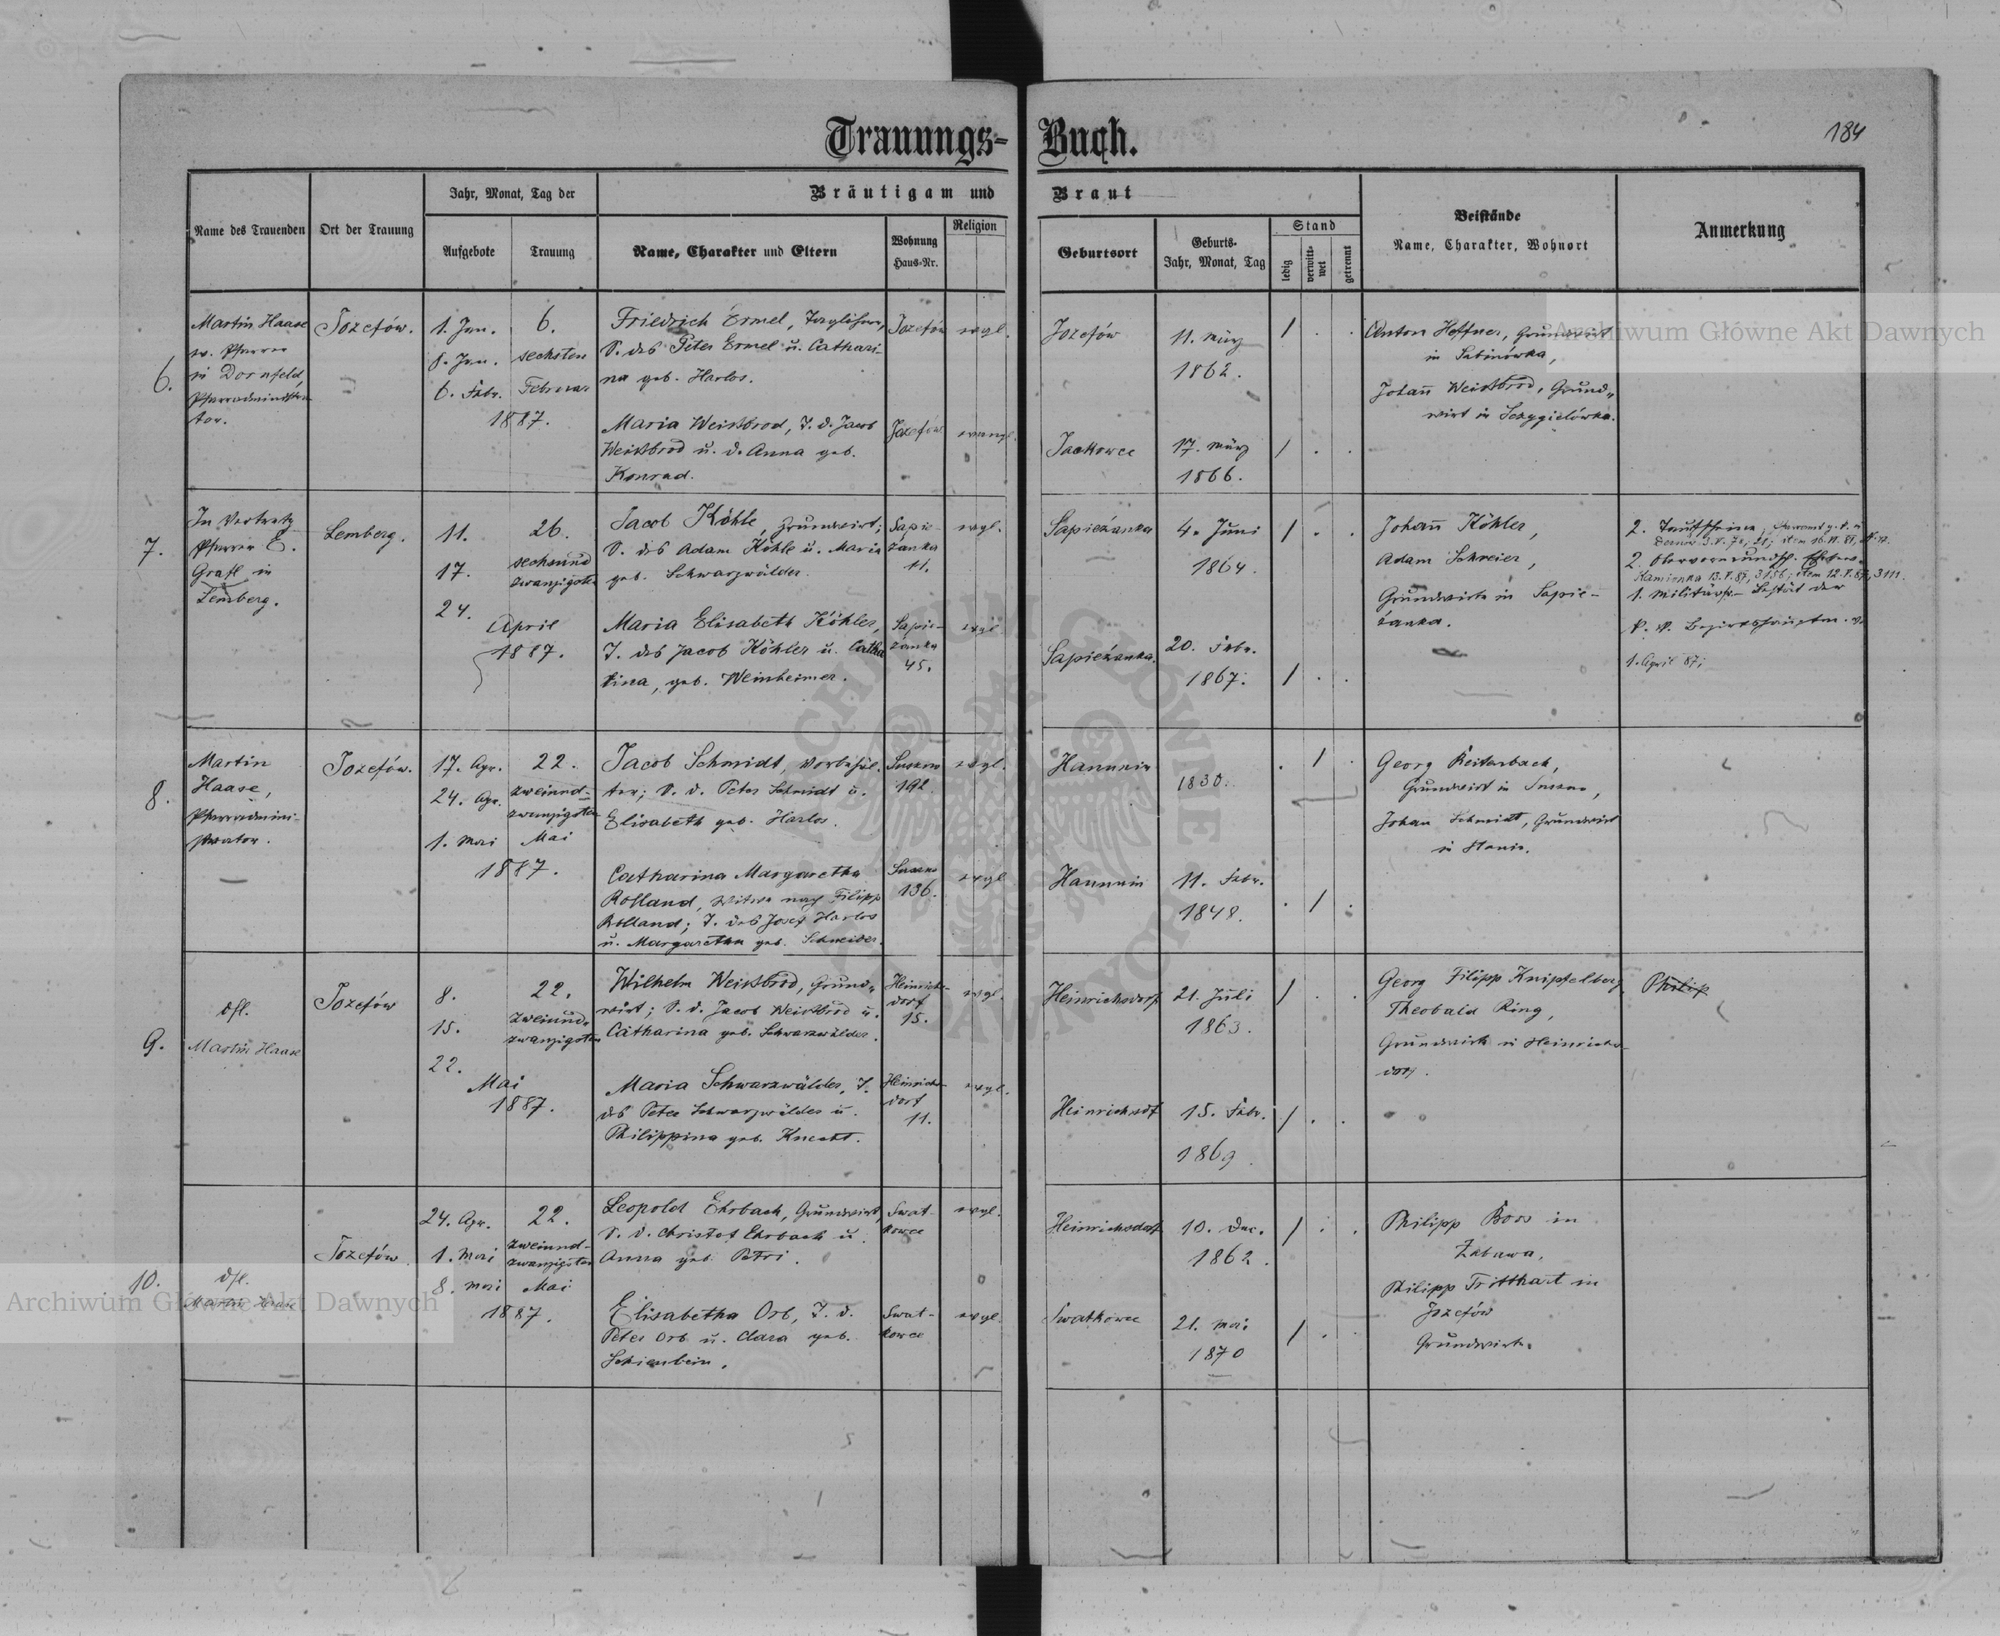 Trauungs-Buch.
184
Name des Trauenden
Ort der Trauung
Jahr, Monat, Tag der
Aufgebote
Trauung
Bräutigam und Braut
Name, Charakter und Eltern
Wohnung
Haus-Nr.
Religion
Geburtsort
Geburts-
Jahr, Monat, Tag
Stand
ledig
verwit-
wet
getrennt
Beistände
Name, Charakter, Wohnort
Anmerkung
6.
Martin Haase
ev. Pfarrer
in Dornfeld,
Pfarradministra-
tor.
Jozefów.
1. Jan.
8. Jan.
6. Febr.
6.
sechsten
Februar
1887.
Friedrich Ermel, Taglöhner,
S. des Peter Ermel u. Cathari-
na geb. Harlos.
Jozefów
evgl.
Jozefów
11. März
1862.
Anton Heffner, Grundwirt
in Sabinówka,
Johann Weissbrod, Grund-
wirt in
Maria Weissbrod, T. d. Jacob
Weissbrod u. d. Anna geb.
Konrad.
Jozefów
evangl.
Jackowce
17. März
1866.
7.
In Vertretg
Pfarrer E.
Grafl in
Lemberg.
Lemberg.
11.
17.
24.
26.
sechsund
zwanzigsten
April
1887.
Jacob Köhle, Grundwirt;
S. des Adam Köhle u. Maria
geb. Schwarzwälder.
Sapie-
żanka
11.
evgl.
Sapieżanka
4. Juni
1864.
Johann Köhler,
Adam Schreier,
Grundwirte in Sapie-
żanka.
2. Taufscheine,
2. Obervormundsch.
Kamionka 13. V. 87, 3156; item 12. V. 87, 3111.
1. Militärsch.
k. k. Bezirkshauptm.
1. April 87;
Maria Elisabeth Köhler,
T. des Jacob Köhler u. Catha
rina, geb. Weinheimer.
Sapie-
żanka
45.
evgl
Sapieżanka.
20. Febr.
1867.
8.
Martin
Haase,
Pfarradmini-
strator.
Jozefów.
17. Apr.
24. Apr.
1. Mai
22.
zweiund-
zwanzigsten
Mai
1887.
Jacob Schmidt, Vorbesitz-
ter; S. d. Peter Schmidt u.
Elisabeth geb. Harlos.
Suszno
192.
evgl.
Hanunin
1830.
Georg Reiterbach,
Grundwirt in Suszno,
Johan Schmidt, Grundwirt
in Stanin.
Catharina Margaretha
Rolland, Witwe nach Filipp
Rolland; T. des Josef Harlos
u. Margaretha geb. Schneider.
Suszno
136.
evgl
Hanunin
11. Febr.
1848.
9.
dsl.
Martin Haase
Jozefów
8.
15.
22.
22.
zweiund-
zwanzigsten
Mai
1887.
Wilhelm Weissbrod, Grund-
wirt; S. d. Jacob Weissbrod u.
Catharina geb. Schwarzwälder.
Heinrichs-
dorf
15.
evgl.
Heinrichsdorf
21. Juli
1863.
Georg Filipp Knipfelberg,
Theobald Ring,
Grundwirte in Heinrichs-
dorf.
Philip
Maria Schwarzwälder, T.
des Peter Schwarzwälder u.
Philippina geb. Knecht.
Heinrichs-
dorf
11.
evgl.
Heinrichsdf
15. Febr.
1869
10.
dsl.
Martin Haase
Jozefów
24. Apr.
1. Mai
8. Mai
22.
zweiund-
zwanzigsten
Mai
1887.
Leopold Ehrbach, Grundwirt,
S. d. Christof Ehrbach u.
Anna geb. Petri.
Swat-
kowce
evgl.
Heinrichsdorf
10. Dec.
1862.
Philipp Boos in
Zabawa.
Philipp Tritthart in
Jozefów
Grundwirte.
Elisabetha Orb, T. d.
Peter Orb u. Clara geb.
Schienbein.
Swat-
kowce
evgl.
Swatkowce
21. Mai
1870
Archiwum Główne Akt Dawnych
Archiwum Główne Akt Dawnych
ARCHIWUM GŁÓWNE AKT DAWNYCH